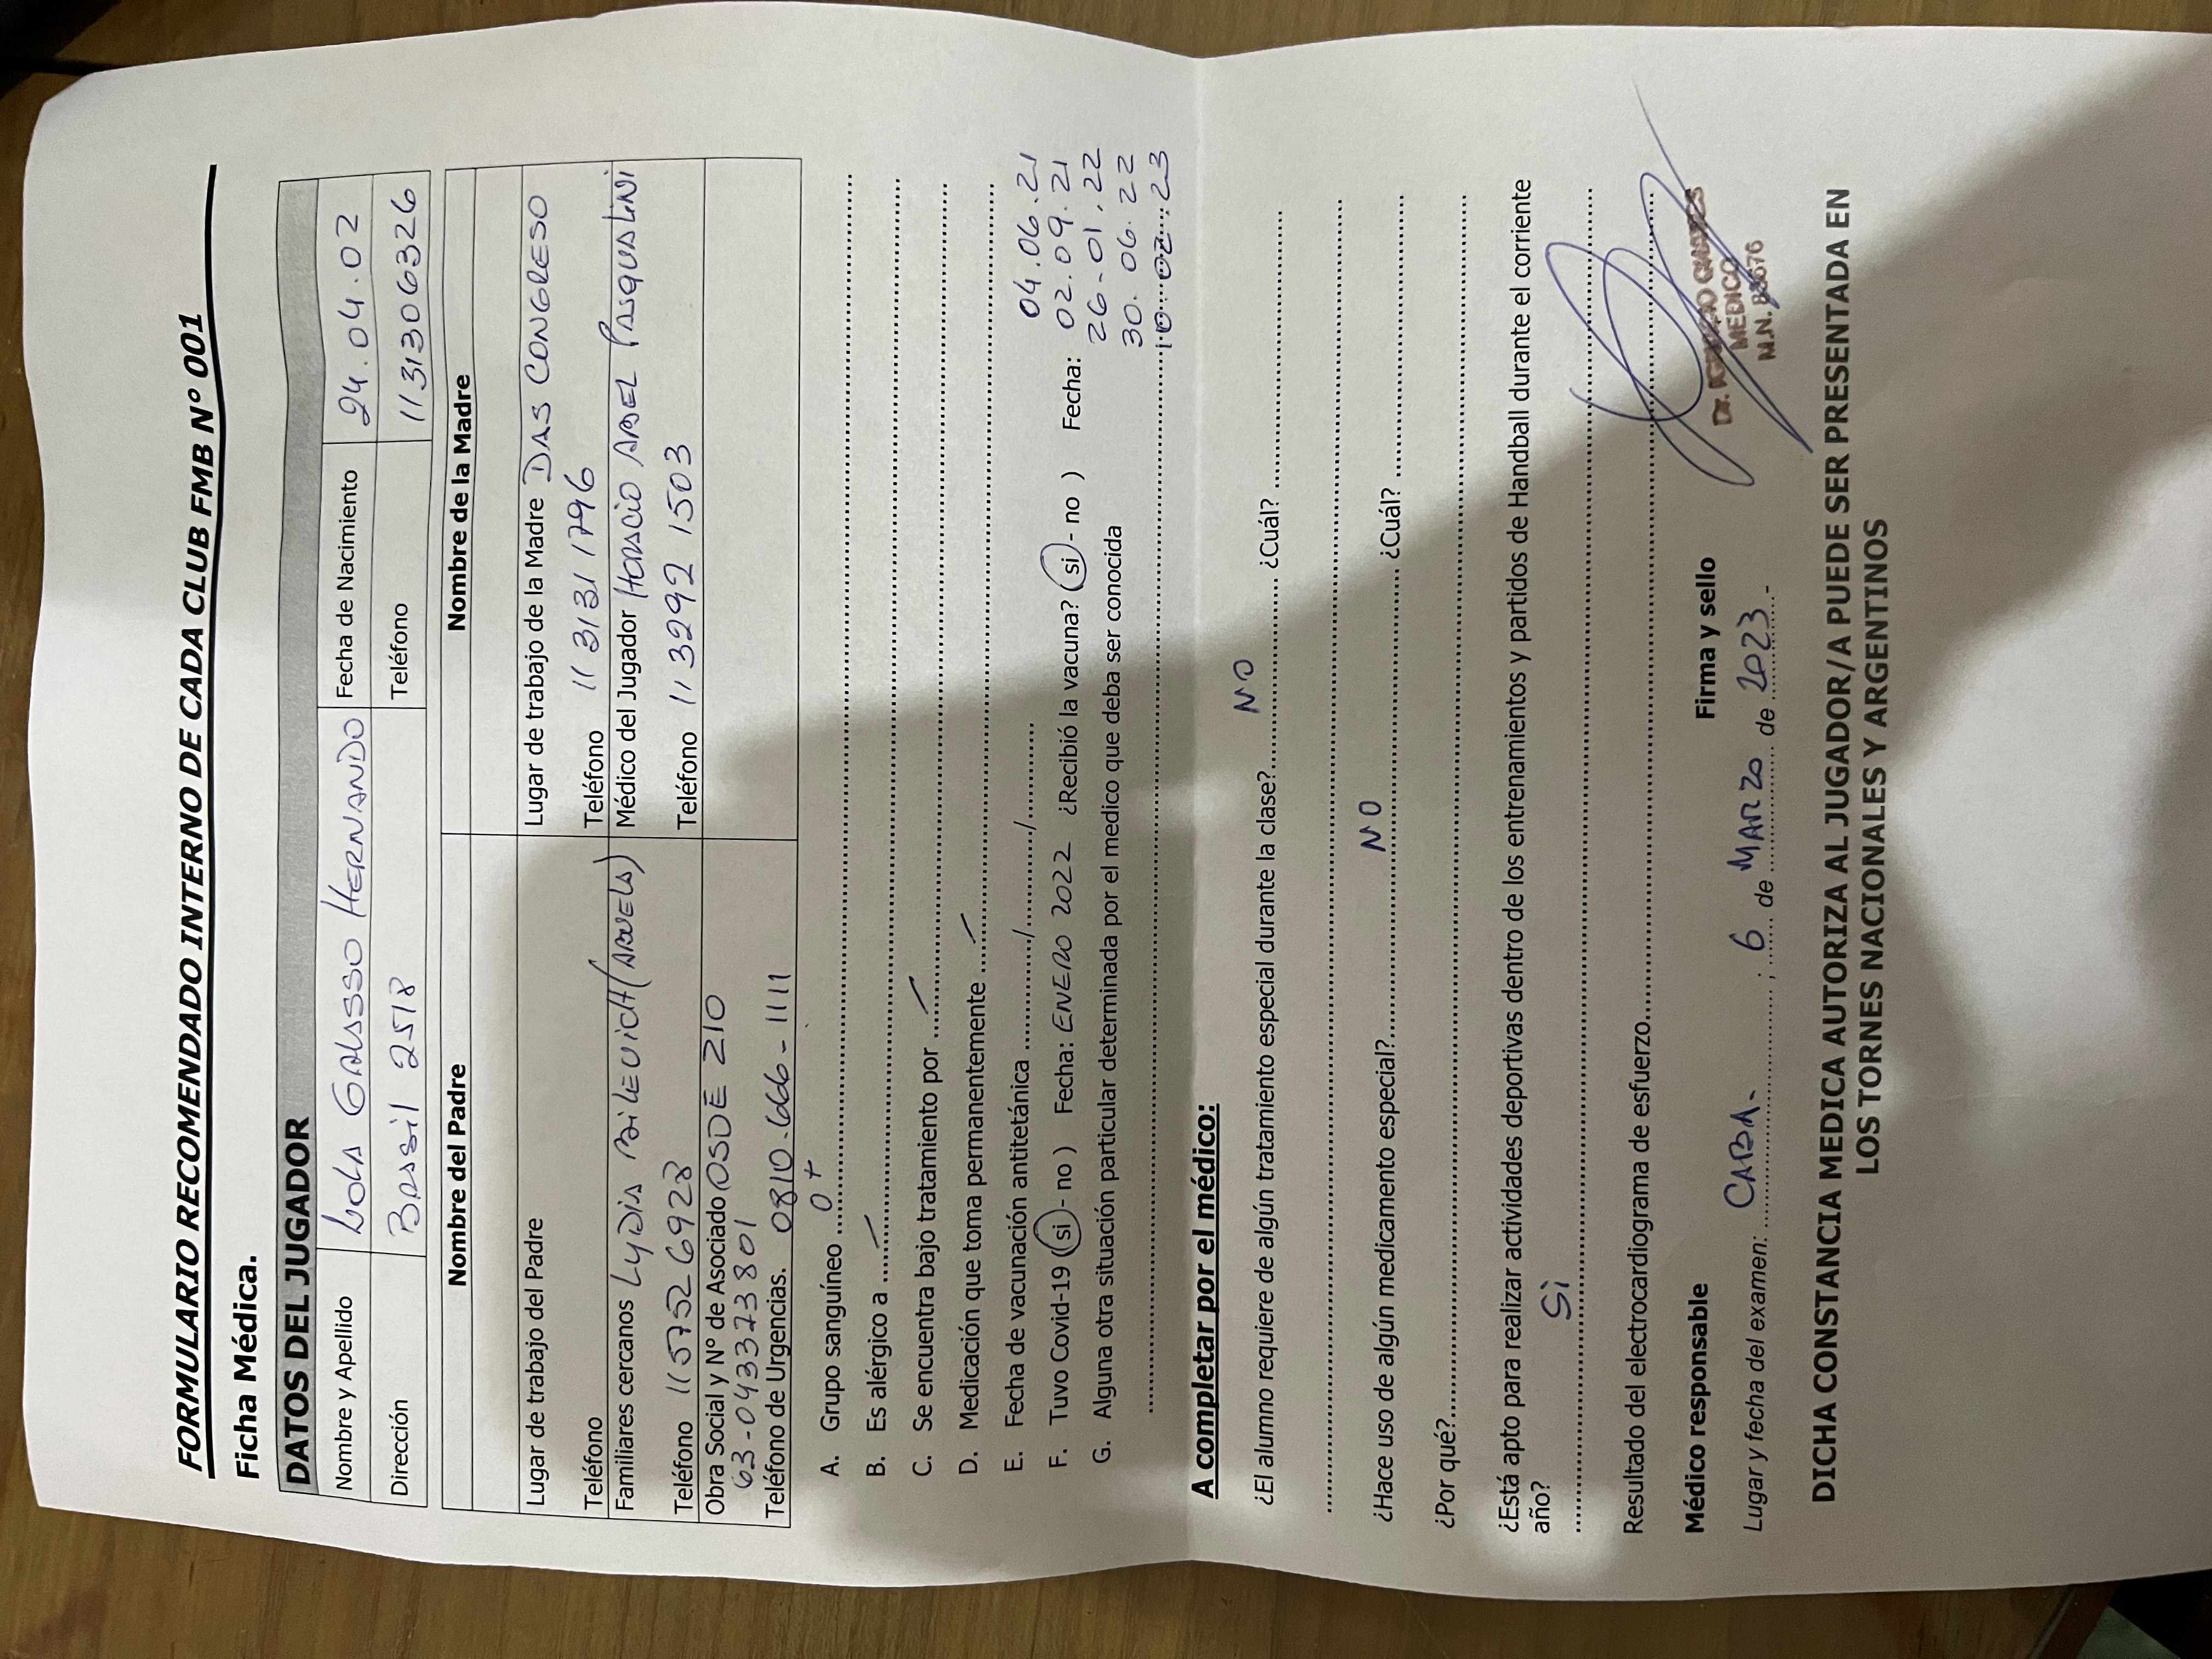 FORMULARIO RECOMENDADO INTERNO DE CADA CLUB FMB N° 001
Ficha Médica.
DATOS DEL JUGADOR
Nombre y Apellido LOLA GALASSO HERNANDO Fecha de Nacimiento 24.04.02
Dirección BRASIL 2518 Teléfono 1131306326
Nombre del Padre Nombre de la Madre
Lugar de trabajo del Padre Lugar de trabajo de la Madre DAS CONGRESO
Teléfono Teléfono 11 3131 1796
Familiares cercanos LYDIA (ABUELA) Médico del Jugador HORACIO ABEL PASQUALINI
Teléfono 1157526928 Teléfono 11 3292 1503
Obra Social y N° de Asociado OSDE 210
Teléfono de Urgencias. 0810-666-1111
A. Grupo sanguíneo 0+
B. Es alérgico a —
C. Se encuentra bajo tratamiento por —
D. Medicación que toma permanentemente —
E. Fecha de vacunación antitetánica ........../........../..........
F. Tuvo Covid-19 (si - no ) Fecha: ENERO 2022 ¿Recibió la vacuna? (si - no ) Fecha: 04.06.21
02.09.21
26-01.22
30.06.22
10.02.23
G. Alguna otra situación particular determinada por el medico que deba ser conocida
A completar por el médico:
¿El alumno requiere de algún tratamiento especial durante la clase? NO ¿Cuál?
¿Hace uso de algún medicamento especial? NO ¿Cuál?
¿Por qué?
¿Está apto para realizar actividades deportivas dentro de los entrenamientos y partidos de Handball durante el corriente
año? Sì
Resultado del electrocardiograma de esfuerzo
Dr.
MEDICO
M.N.
Médico responsable Firma y sello
Lugar y fecha del examen: CABA. ; 6 de MARZO de 2023.-
DICHA CONSTANCIA MEDICA AUTORIZA AL JUGADOR/A PUEDE SER PRESENTADA EN
LOS TORNES NACIONALES Y ARGENTINOS